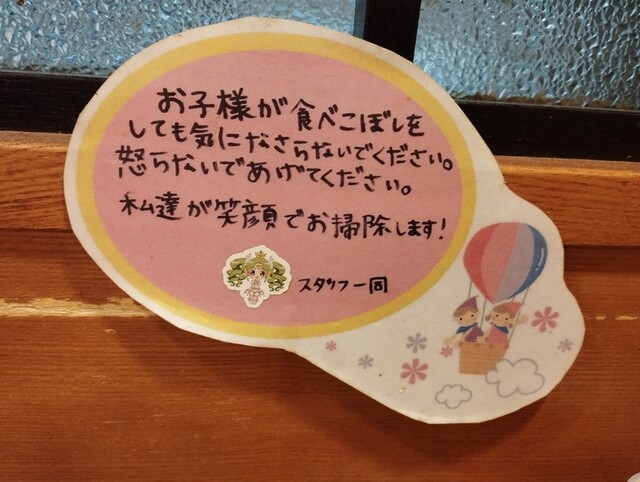 お子様が食べこぼしを
しても気になさらないでください。
怒らないであげてください。
私達が笑顔でお掃除します!
スタッフ一同